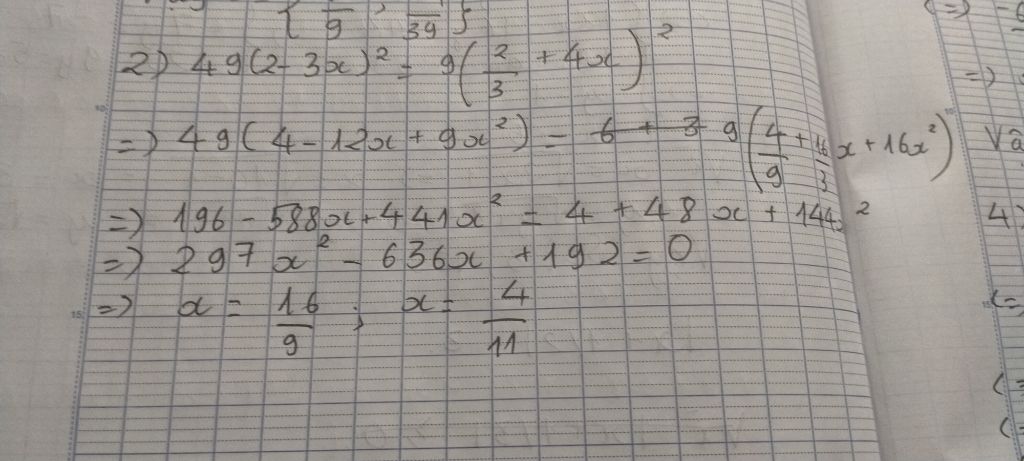 { /9 ; /39 }
2) 49(2-3x)² = 9(2/3 + 4x)²
=) 49(4-12x+9x²) = 6 + 3 9(4/9 + 16/3 x + 16x²)
=) 196 - 588x + 441x² = 4 + 48x + 144x²
=) 297x² - 636x + 192 = 0
=) x = 16/9 ; x = 4/11
(=)
=)
Vâ
4)
(=
(=
(=